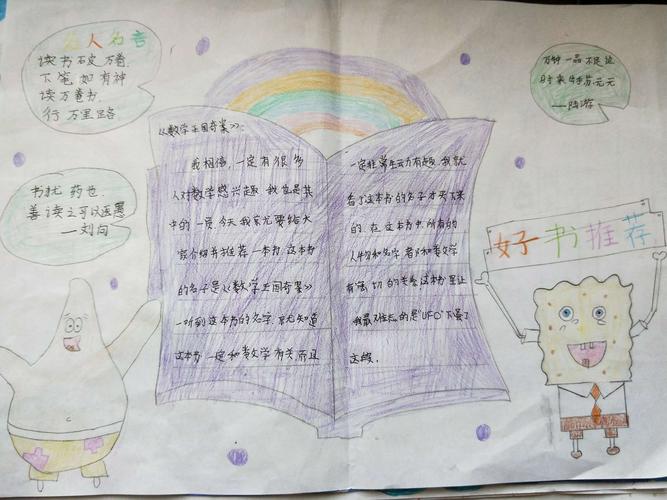 名人名言
读书破万卷,
下笔如有神
读万卷书,
行万里路
书犹药也,
善读之可以医愚
——刘向
《数学王国奇案》:
我相信,一定有很多
人对数学感兴趣,我也是其
中的一员,今天我就要给大
家介绍并推荐一本书,这本书
的名子是《数学王国奇案》
一听到这本书的名字,就知道
这本书一定和数学有关,而且
一定非常生动有趣,我就
看了这本书的名子才买下来
的,在这本书中,所有的
人物和名字都和数学
有密切的关系,这本书里让
我最难忘的是"UFO"不见了
这段,
万钟一品不足论
时来出手苏元元
——陆游
好书推荐